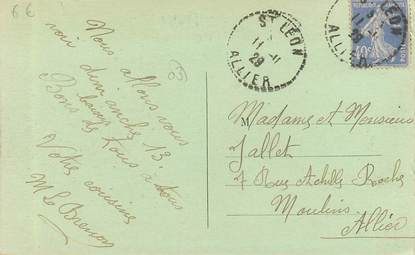 6 €
Nous allons vous
voir dimanche 13.
Bons
de tous à tous
Votre cousine
M Le
ST LÉON
11 -11
29
ALLIER
ALLIER
40c
Madame et Monsieur
Jallet
7 Rue Achille Roche
Moulins
Allier